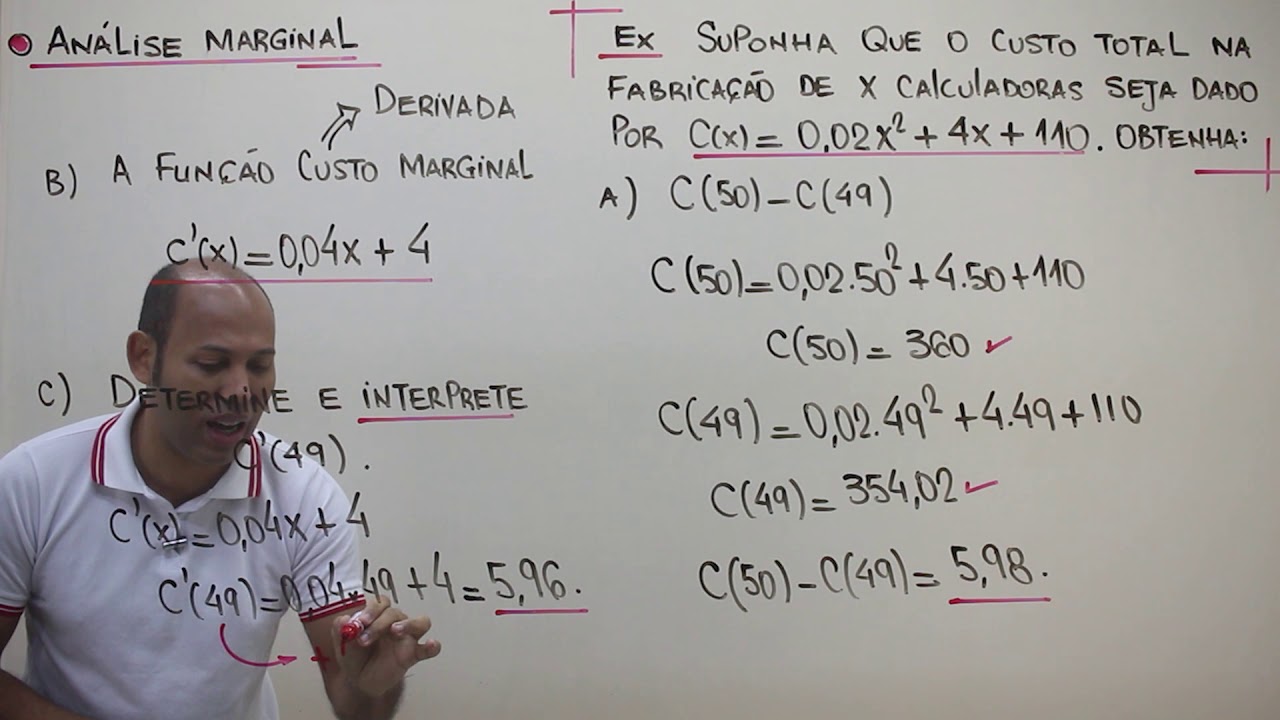 ANÁLISE MARGINAL
DERIVADA
B) A FUNÇÃO CUSTO MARGINAL
C'(x) = 0,04x + 4
C) DETERMINE E INTERPRETE
C'(49).
C'(x) = 0,04x + 4
C'(49) = 0,04.49 + 4 = 5,96.
+
EX SUPONHA QUE O CUSTO TOTAL NA
FABRICAÇÃO DE X CALCULADORAS SEJA DADO
POR C(x) = 0,02x² + 4x + 110. OBTENHA:
A) C(50) - C(49)
C(50) = 0,02.50² + 4.50 + 110
C(50) = 360 ✓
C(49) = 0,02.49² + 4.49 + 110
C(49) = 354,02 ✓
C(50) - C(49) = 5,98.